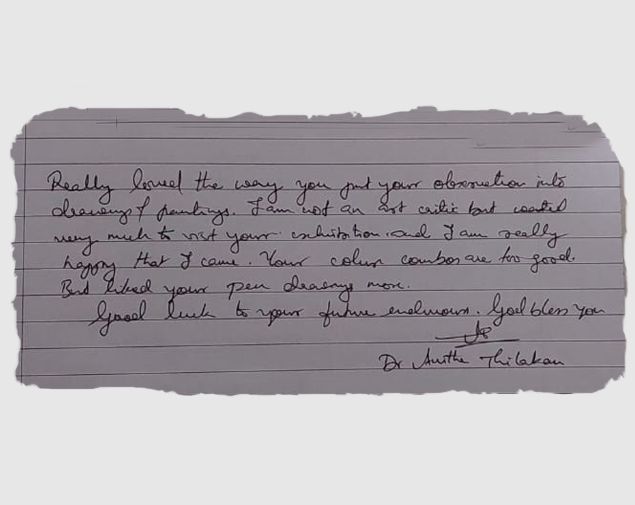 Really loved the way you put your observation into
drawings & paintings. I am not an art critic but wanted
very much to visit your exhibition and I am really
happy that I came. Your colour combos are too good.
But liked your pen drawings more.
Good luck to your future endeavours. God bless you
Dr Anitha Thilakan